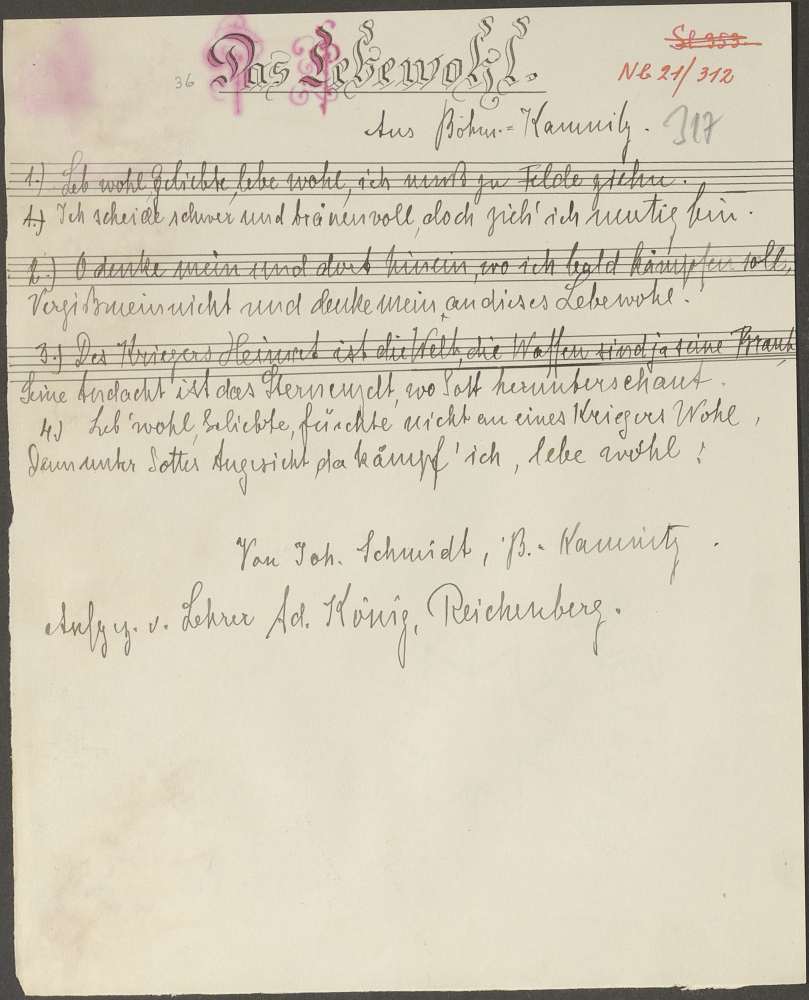 36 Das Lebewohl.
Sl 353.
Nb 21/312
Aus Böhm.-Kamnitz. 317
1.) Leb wohl, Geliebte, lebe wohl, ich muß zu Felde ziehn.
1.) Ich scheide schwer und tränenvoll, doch zieh' ich mutig hin.
2.) O denke mein und dort hinein, wo ich bald kämpfen soll,
Vergißmeinnicht und denke mein, an dieses Lebewohl.
3.) Des Kriegers Heimat ist die Welt, die Waffen sind ja seine Braut
Seine Andacht ist das Sternenzelt, wo Gott herunterschaut.
4.) Leb' wohl, Geliebte, fürchte nicht an eines Kriegers Wohl,
Denn unter Gottes Angesicht, da kämpf' ich, lebe wohl!
Von Joh. Schmidt, B.-Kamnitz.
Aufgez. v. Lehrer Ad. König, Reichenberg.